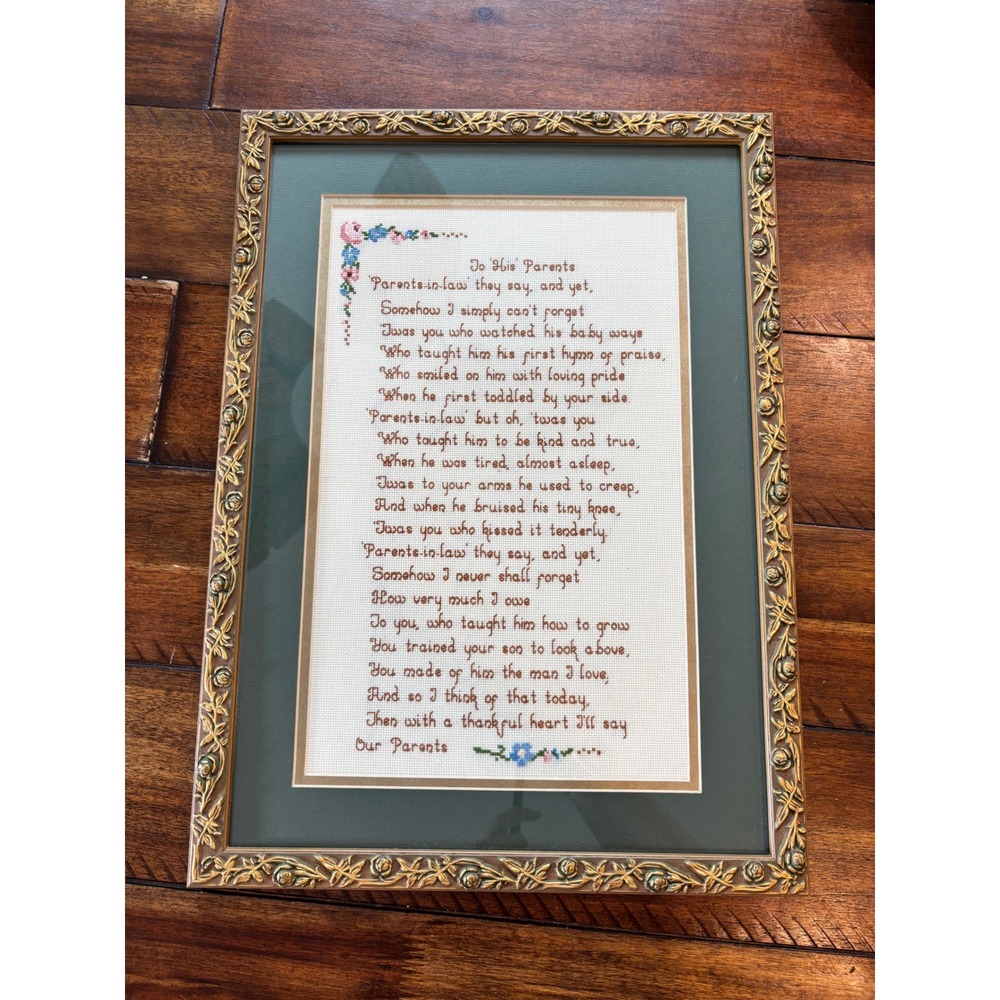 To 'His' Parents
'Parents-in-law' they say, and yet,
Somehow I simply can't forget
'Twas you who watched his baby ways
Who taught him his first hymn of praise,
Who smiled on him with loving pride
When he first toddled by your side.
'Parents-in-law' but oh, 'twas you
Who taught him to be kind and true,
When he was tired, almost asleep,
'Twas to your arms he used to creep,
And when he bruised his tiny knee,
'Twas you who kissed it tenderly.
'Parents-in-law' they say, and yet,
Somehow I never shall forget
How very much I owe
To you, who taught him how to grow
You trained your son to look above,
You made of him the man I love,
And so I think of that today,
Then with a thankful heart I'll say
Our Parents